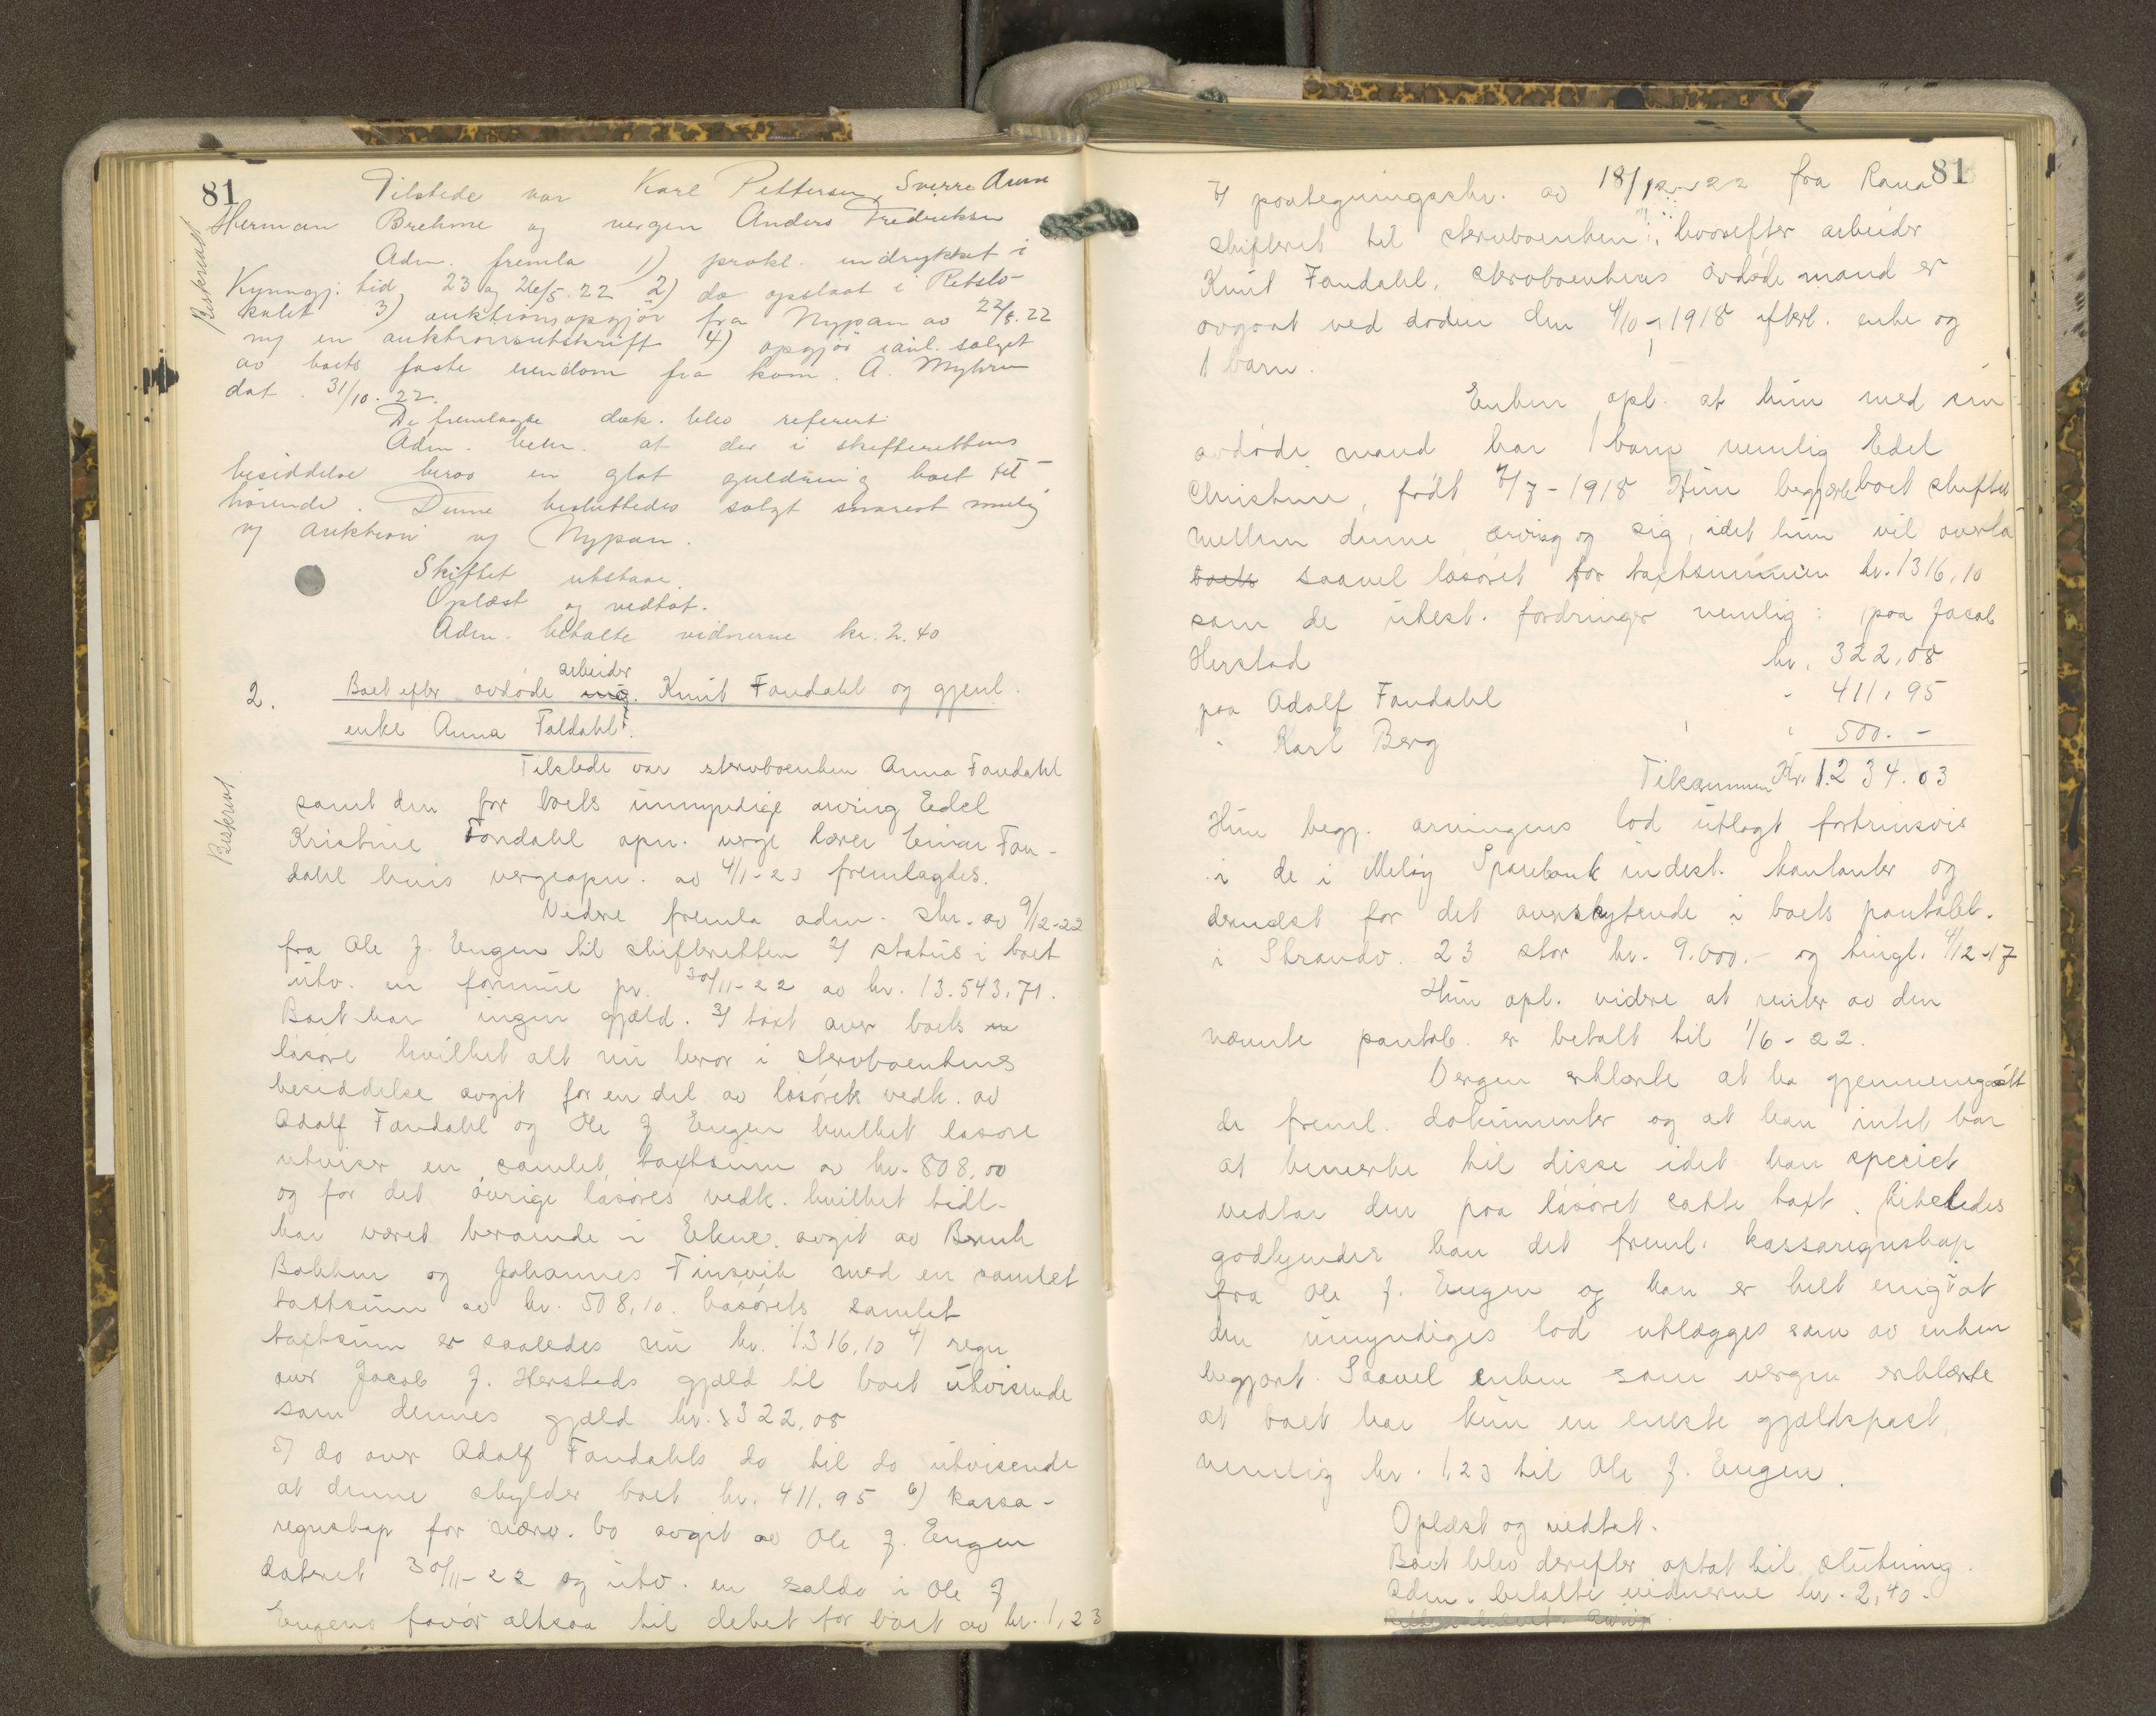 81
Tilstede var Karl Pettersen, Sverre Arven
Herman Brehme og vergen Anders Fredriksen
Beskrevet
Adm. fremla 1) prokl. indrykket i
Kunngj. tid 23 og 26/5. 22 2) do opslaat i Retslo-
kalet 3) auktionsopgjør fra Nypan av 22/8. 22
m/ en auktionsutskrift 4) opgjør i anl. salget
av boets faste eiendom fra kom. A. Myhre
dat. 31/10. 22.
De fremlagte dok. blev referert
Adm. bem. at der i skifterettens
besiddelse beror en glat guldring boet til-
hørende. Denne besluttedes solgt snarest mulig
v/ auktion v/ Nypan.
Skiftet utstaar.
Oplæst og vedtat.
Adm. betalte vidnerne kr. 2.40
2. Boet efter avdøde arbeider Knut Fondahl og gjenl.
enke Anna Foldahl.
Beskrevet
Tilstede var stervboenken Anna Fondahl
samt den for boets umyndige arving Edel
Kristine Fondahl opn. verge lærer Einar Fon-
dahl hvis vergeopn. av 4/1-23 fremlagdes.
Videre fremla adm. skr. av 9/12-22
fra Ole J. Eugen til skifteretten 2/ status i boet
utv. en formue pr. 30/11-22 av kr. 13.543,71.
Boet har ingen gjæld. 3/ takst over boets
løsøre hvilket alt nu beror i stervboenkens
besiddelse avgit for en del av løsørets vedk. av
Adolf Fondahl og Ole J. Eugen hvilket løsøre
utviser en samlet taxtsum av kr. 808,00
og for det øvrige løsøres vedk. hvilket tidl.
har været beroende i avgit av Bernh
Bakken og Johannes Finsvik med en samlet
takstsum av kr. 508,10. Løsørets samlet
taxtsum er saaledes nu kr. 1316,10 4/ regn
over Jacob J. Herstads gjæld til boet utvisende
som dennes gjæld kr. 322,08
5) do over Adolf Fondahls do til do utvisende
at denne skylder boet kr. 411,95 6) kassa-
regnskap for nærv. bo avgit av Ole J. Eugen
dateret 30/11-22 og utv. en saldo i Ole J
Eugens favør altsaa til debet for boet av kr. 1,23
81
7/ paategningsskr. av 18/12-22 fra Rana
skifteret til stervboenken, hvorefter arbeider
Knut Fondahl, stervboenkens avdøde mand er
avgaat ved døden den 4/10-1918 efterl. enke og
1 barn.
Enken opl. at hun med sin
avdøde mand har 1 barn nemlig Edel
Christine, født 7/7-1918 Hun begjærte boet skiftet
mellem denne arving og sig, idet hun vil overta
boets saavel løsøret for taxtsummen kr. 1316,10
som de utest. fordringer nemlig: paa Jacob
Herstad kr. 322,08
paa Adolf Fondahl - 411,95
- Karl Berg - 500.-
Tilsammen Kr. 1.234.03
Hun begj. arvingens lod utlagt fortrinsvis
i de i Meløy Sparebank indest. kontanter og
dernæst for det overskytende i boets pantobl.
i Strandv. 23 stor kr. 9.000.- og tingl. 4/12-17
Hun opl. videre at renter av den
nævnte pantob. er betalt til 1/6-22.
Vergen erklærte at ha gjennemgaatt
de freml. dokumenter og at han intet har
at bemerke til disse idet han specielt
vedtar den paa løsøret satte taxt. Likeledes
godkjender han det freml. kassaregnskap
fra Ole J. Eugen og han er helt enig i at
den umyndiges lod utlægges som av enken
begjært. Saavel enken som vergen erklærte
at boet har kun en eneste gjældspost,
nemlig kr. 1,23 til Ole J. Eugen.
Oplæst og vedtat.
Boet blev derefter optat til slutning.
Adm. betalte vidnerne kr. 2,40.